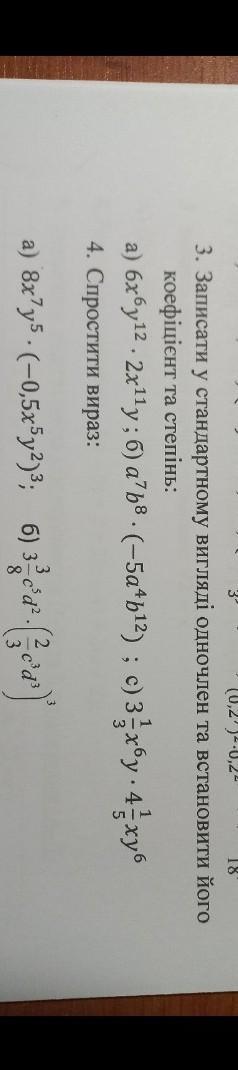 (0,2 )²·0,2²
3 18
3. Записати у стандартному вигляді одночлен та встановити його
коефіцієнт та степінь:
а) 6x⁶y¹² · 2x¹¹y ; б) a⁷b⁸ · (−5a⁴b¹²) ; с) 3 1/3 x⁶y · 4 1/5 xy⁶
4. Спростити вираз:
а) 8x⁷y⁵ · (−0,5x⁵y²)³; б) 3 3/8 c⁵d² · (2/3 c³d³)³